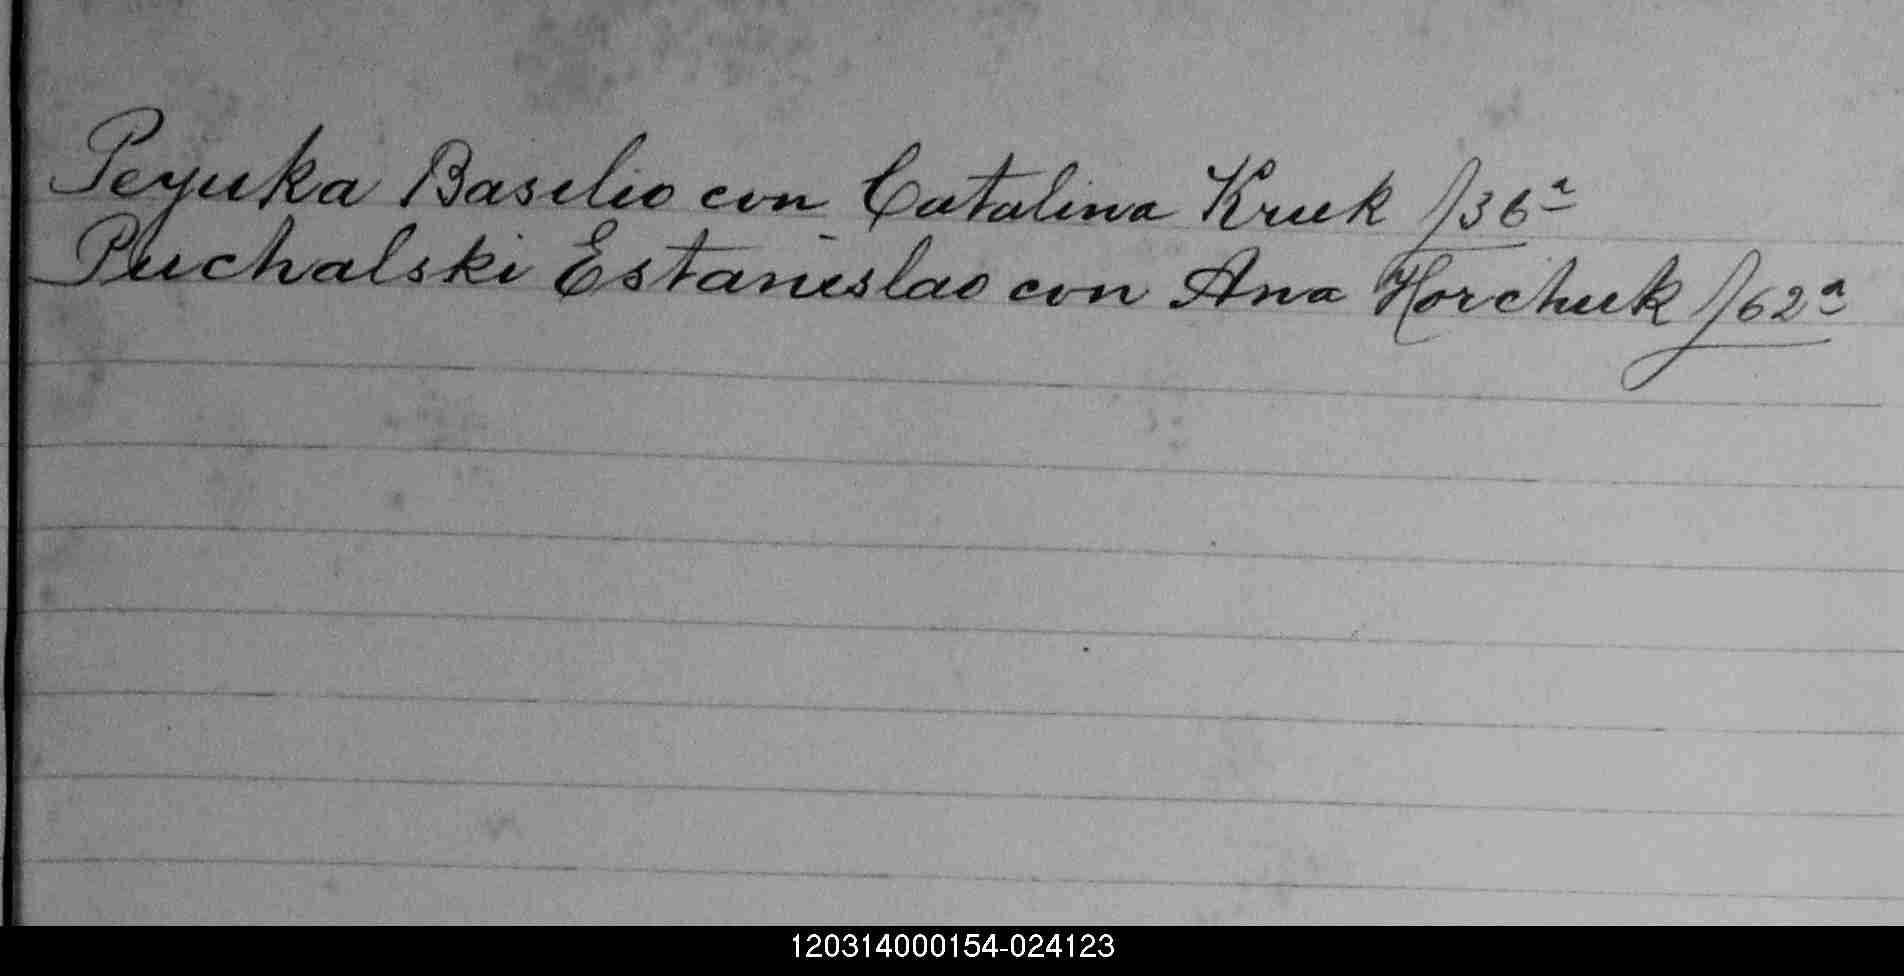 Peyuka Basilio con Catalina Kruk f 36ª
Puchalski Estanislao con Ana Horchuk f 62ª
120314000154-024123